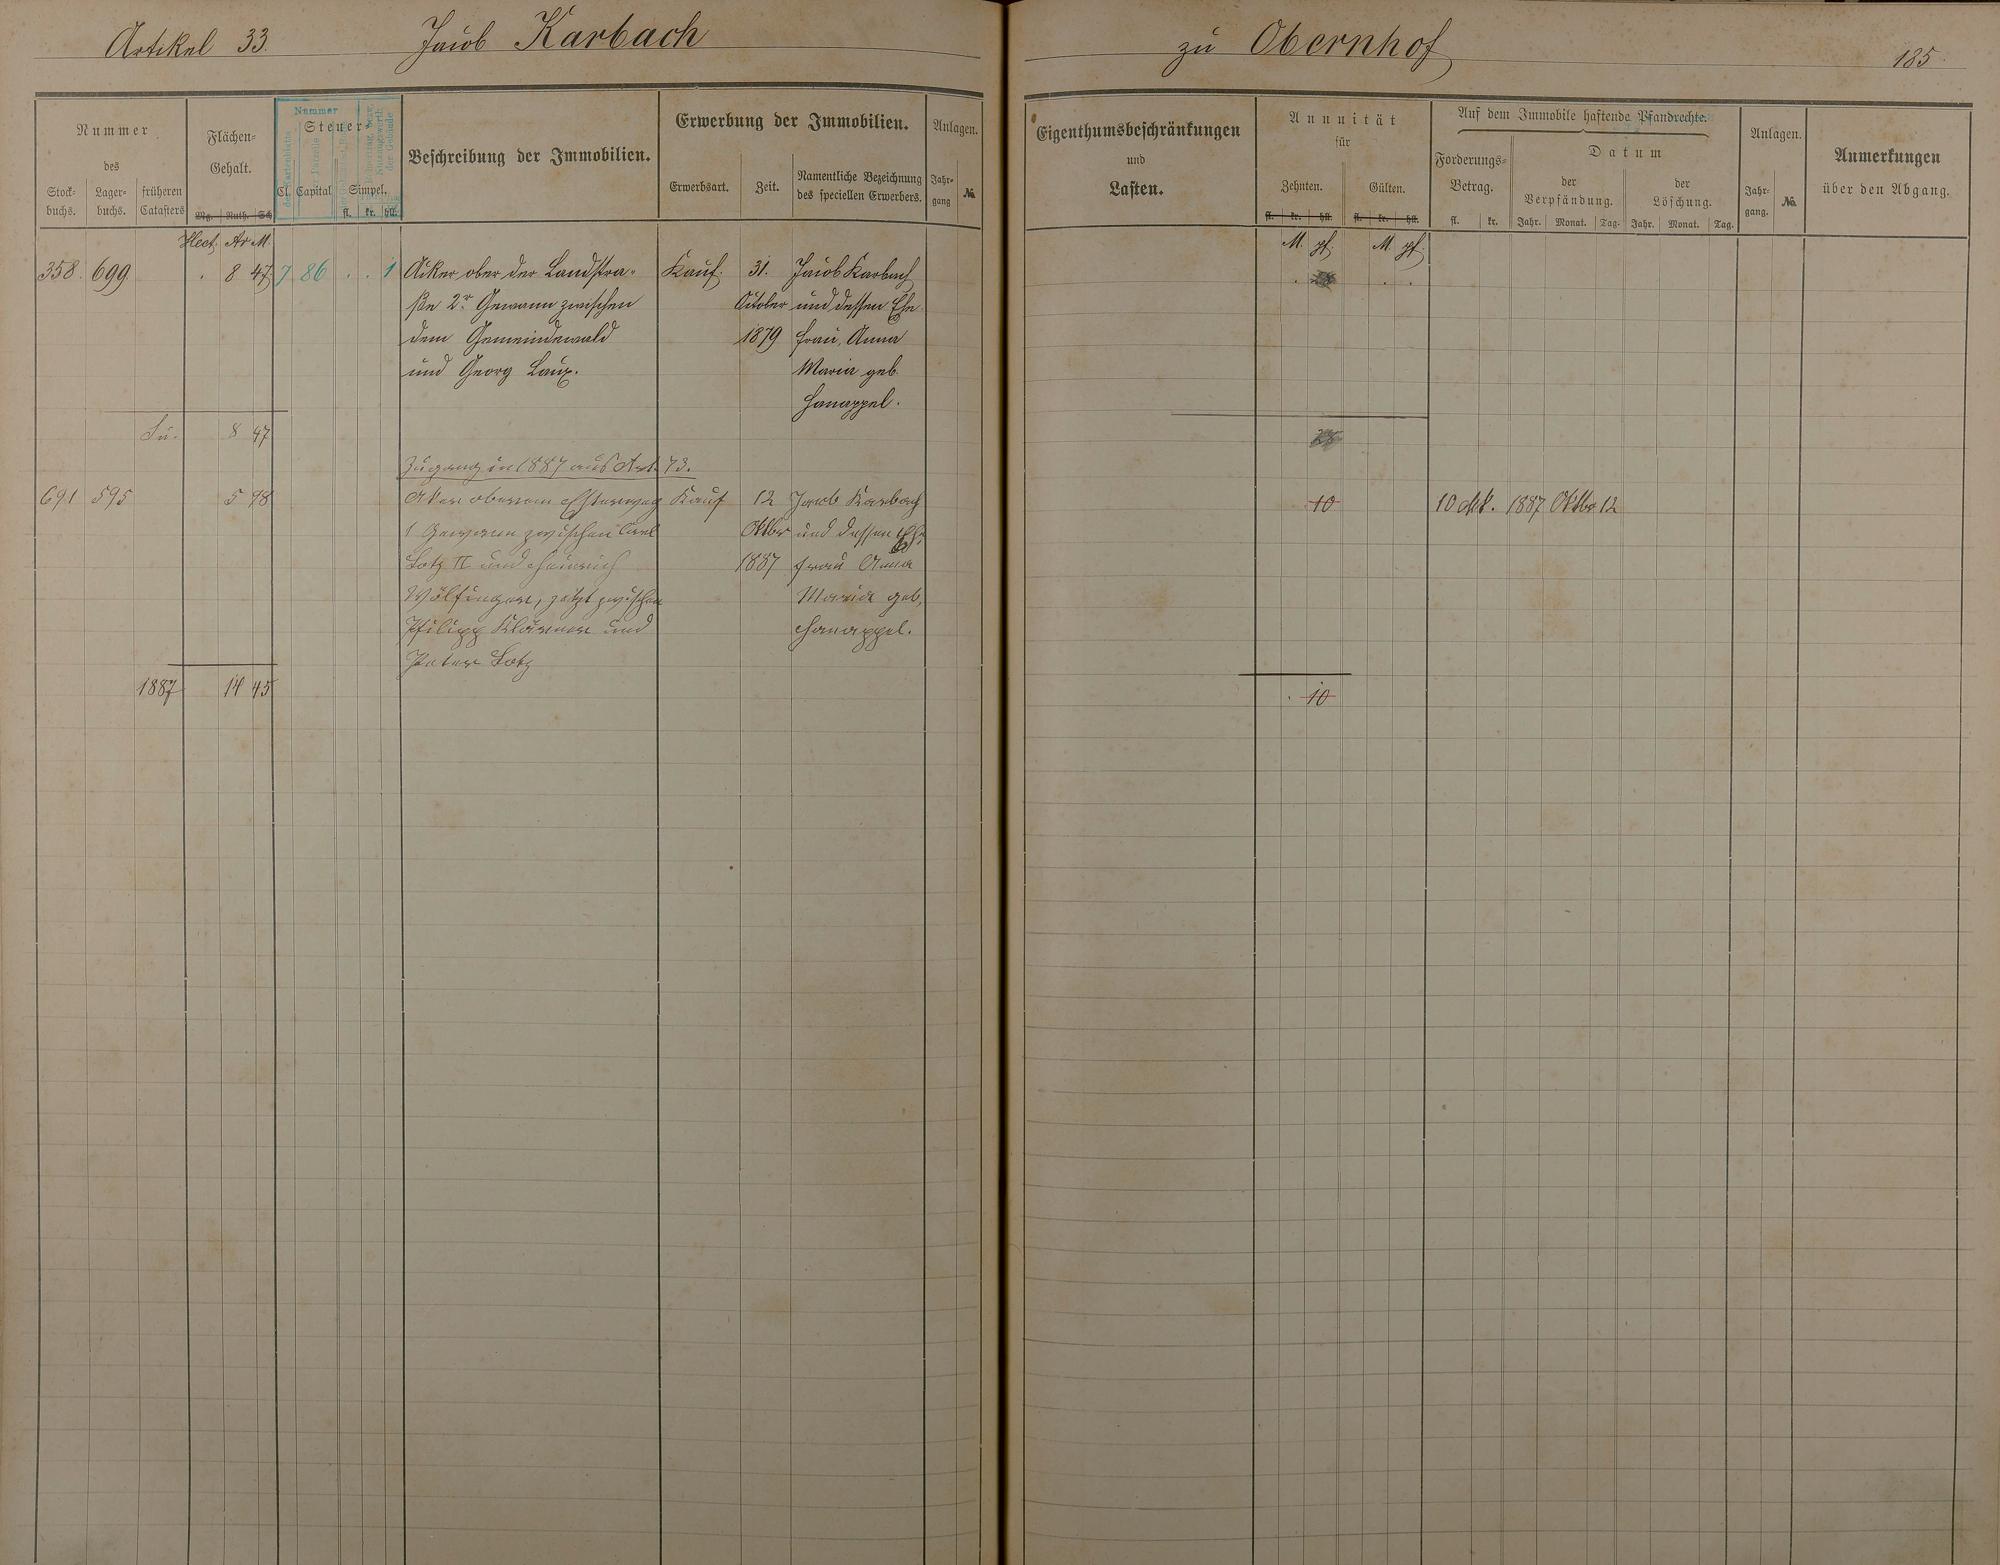 Artikel 33. Jacob Karbach zu Obernhof 185
Nummer
des
Stock-
buchs.
Lager-
buchs.
früheren
Catasters
Flächen-
Gehalt.
Mg. Ruth. Sch
Nummer
Steuer-
Cl. Capital Simpel.
fl. kr. hll.
Beschreibung der Immobilien.
Erwerbung der Immobilien.
Erwerbsart. Zeit.
Namentliche Bezeichnung
des speciellen Erwerbers.
Anlagen.
Jahr-
gang
No.
Eigenthumsbeschränkungen
und
Lasten.
Annuität
für
Zehnten. Gülten.
fl. kr. hll. fl. kr. hll.
Auf dem Immobile haftende Pfandrechte.
Forderungs-
Betrag.
fl. kr.
Datum
der
Verpfändung.
Jahr. Monat. Tag.
der
Löschung.
Jahr. Monat. Tag.
Anlagen.
Jahr-
gang.
No.
Anmerkungen
über den Abgang.
Hect. Ar M. M. pf. M pf.
358. 699. 8 47 7 86 . . 1 Acker ober der Landstra- Kauf. 31. Jacob Karbach
ße 2r Gewann zwischen October und dessen Ehe
dem Gemeindewald 1879 frau, Anna
und Georg Laux. Maria geb.
Hanappel.
Su. 8 47 28
Zugang in 1887 aus Art. 73.
691 595 5 98 Aker oberem Kauf 12 Jacob Karbach 10 10 Mk. 1887 Oktbr 12
1 Gewann zwischen Carl Oktbr und dessen Eh-
Lotz II und Heinrich 1887 frau Anna
Wölfinger, jetzt zwischen Maria geb.
Philipp Klärner und Hanappel.
Peter Lotz
1887 14 45 10